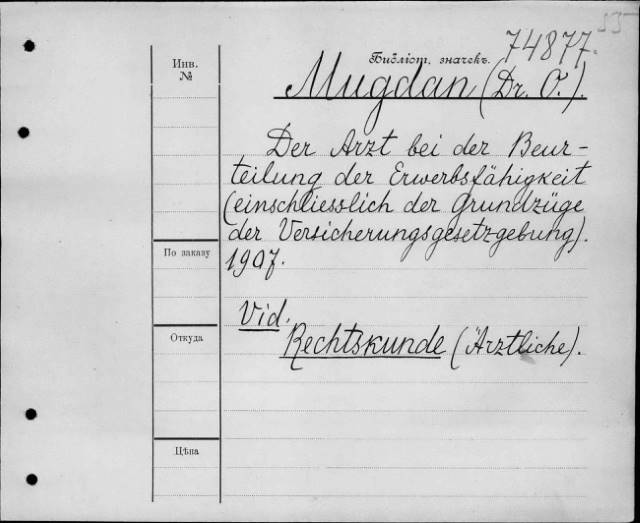 74877.
Библіот. значекъ.
Инв.
№
Mugdan (Dr. O.).
Der Arzt bei der Beur-
teilung der Erwerbsfähigkeit
(einschliesslich der Grundzüge
der Versicherungsgesetzgebung).
По заказу
1907.
Vid.
Откуда
Rechtskunde (Ärztliche).
Цѣна